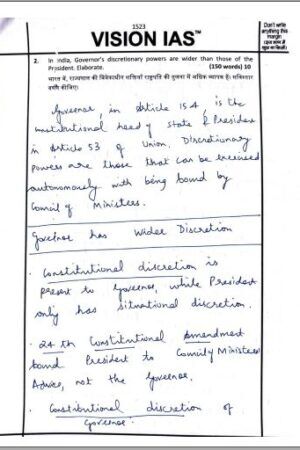 1523
VISION IAS™
Don't write
anything this
margin
2. In India, Governor's discretionary powers are wider than those of the
President. Elaborate. (150 words) 10
भारत में, राज्यपाल की विवेकाधीन शक्तियां राष्ट्रपति की तुलना में अधिक व्यापक हैं। सविस्तार
वर्णन कीजिए।
Governor, in Article 154, is the
institutional head of State & President
in Article 53 of Union. Discretionary
Powers are those that can be exercised
autonomously with being bound by
Council of Ministers.
Governor has Wider Discretion
· Constitutional discretion is
present to Governor, while President
only has situational discretion.
· 24th Constitutional Amendment
bound President to Council Ministers
Advice, not the Governor.
· Constitutional discretion of
Governor